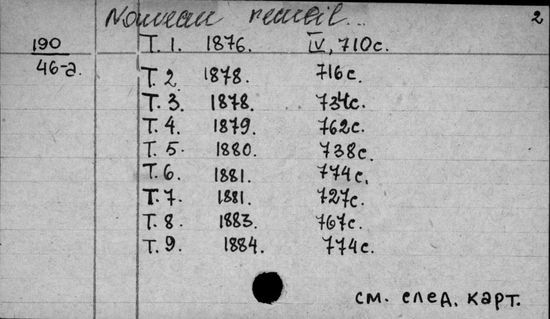 Nouveau recueil... 2
190
46-а.
Т. 1. 1876. IV, 710с.
Т. 2 1878. 716с.
Т. 3. 1878. 734с.
Т. 4. 1879. 762с.
Т. 5. 1880. 738с.
Т. 6. 1881. 774с.
Т. 7. 1881. 727с.
Т. 8. 1883. 767с.
Т. 9. 1884. 774с.
см. след. карт.